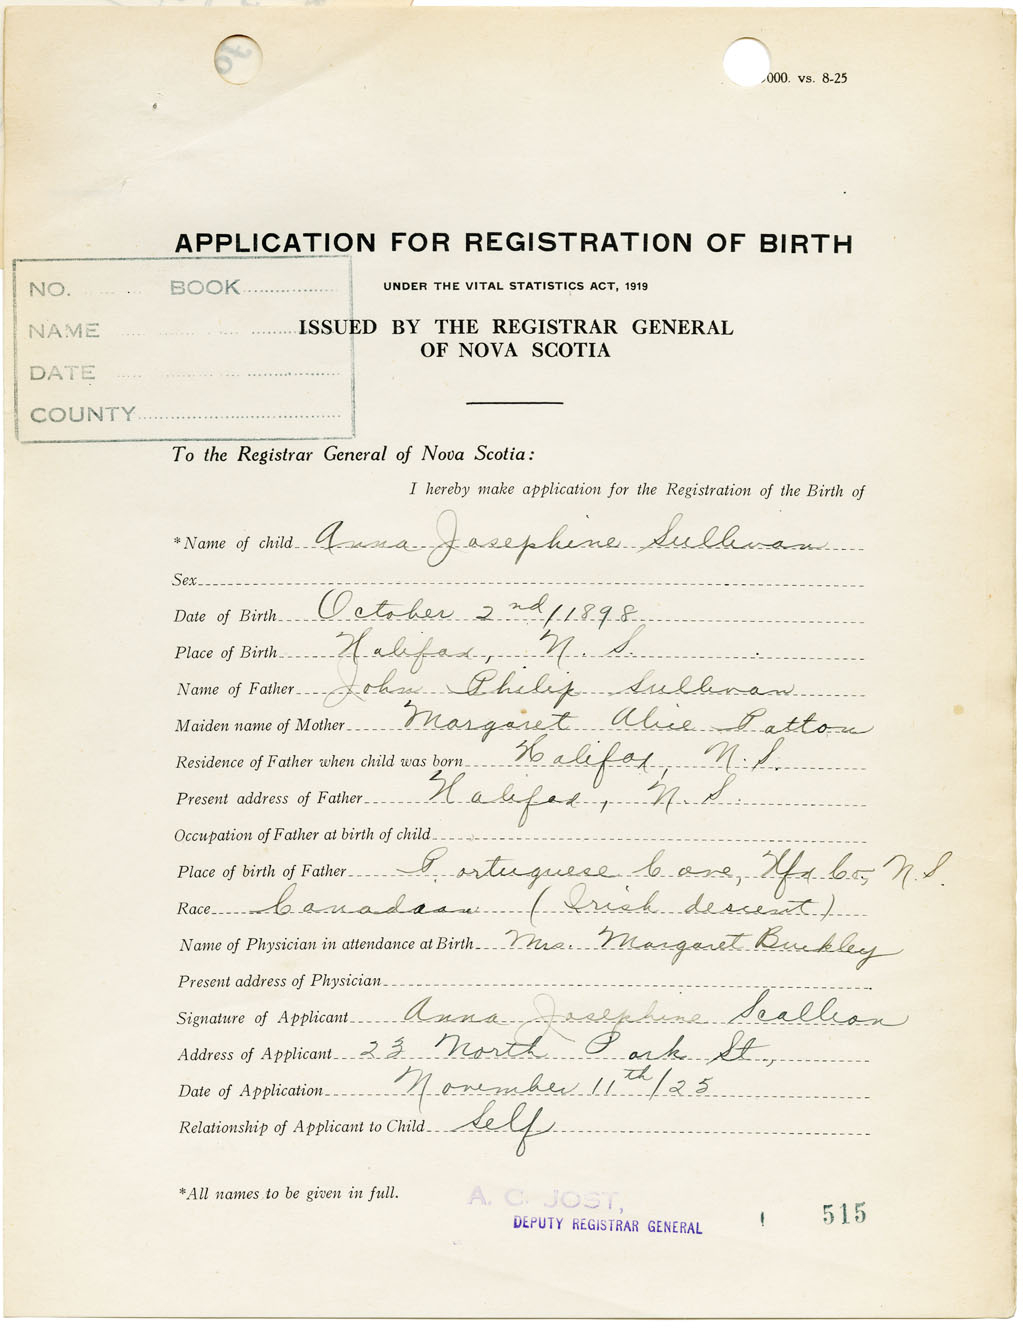 000. vs. 8-25
APPLICATION FOR REGISTRATION OF BIRTH
UNDER THE VITAL STATISTICS ACT, 1919
ISSUED BY THE REGISTRAR GENERAL
OF NOVA SCOTIA
NO. BOOK
NAME
DATE
COUNTY
To the Registrar General of Nova Scotia:
I hereby make application for the Registration of the Birth of
*Name of child Anna Josephine Sullivan
Sex
Date of Birth October 2nd/1898
Place of Birth Halifax, N. S.
Name of Father John Philip Sullivan
Maiden name of Mother Margaret Alice Patton
Residence of Father when child was born Halifax, N. S.
Present address of Father Halifax, N. S.
Occupation of Father at birth of child
Place of birth of Father Portuguese Cove, Hfx Co., N. S.
Race Canadian (Irish descent)
Name of Physician in attendance at Birth Mrs. Margaret Buckley
Present address of Physician
Signature of Applicant Anna Josephine Scallion
Address of Applicant 23 North Park St.,
Date of Application November 11th/25
Relationship of Applicant to Child Self
*All names to be given in full.
A. C. JOST,
DEPUTY REGISTRAR GENERAL
515